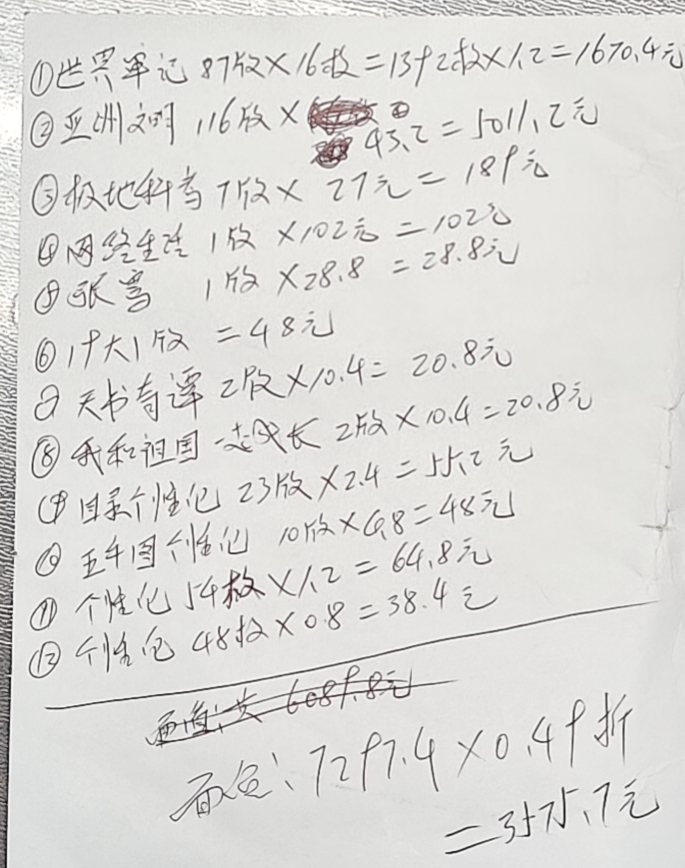 ①世界军记 87版×16枚=1392枚×1.2=1670.4元
②亚洲文明 116版× 43.2=5011.2元
③极地科考 7版× 27元=189元
④网络生活 1版×102元=102元
⑤张骞 1版×28.8=28.8元
⑥19大1版 =48元
⑦天书奇谭 2版×10.4= 20.8元
⑧我和祖国一起成长 2版×10.4=20.8元
⑨国录个性化 23版×2.4=55.2元
⑩五牛图个性化 10版×4.8=48元
⑪个性化 54枚×1.2=64.8元
⑫个性化 48枚×0.8=38.4元
面值:共 6089.8元
面值:7297.4×0.49折
=3575.7元